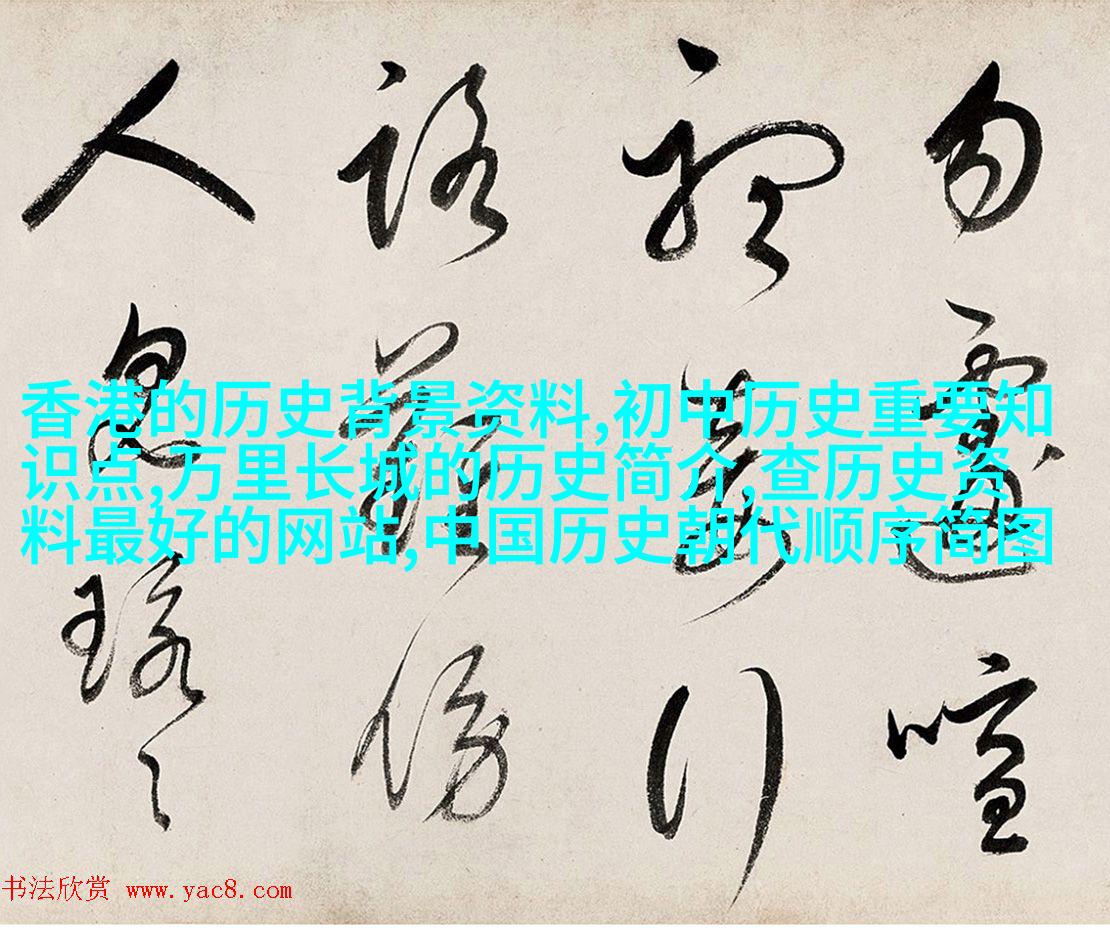 勿 喧
行
路難傍
人息
香港的历史背景资料,初中历史重要知
识点,万里长城的历史简介,查历史资
料最好的网站,中国历史朝代顺序简图
书法欣赏 www.yac8.com